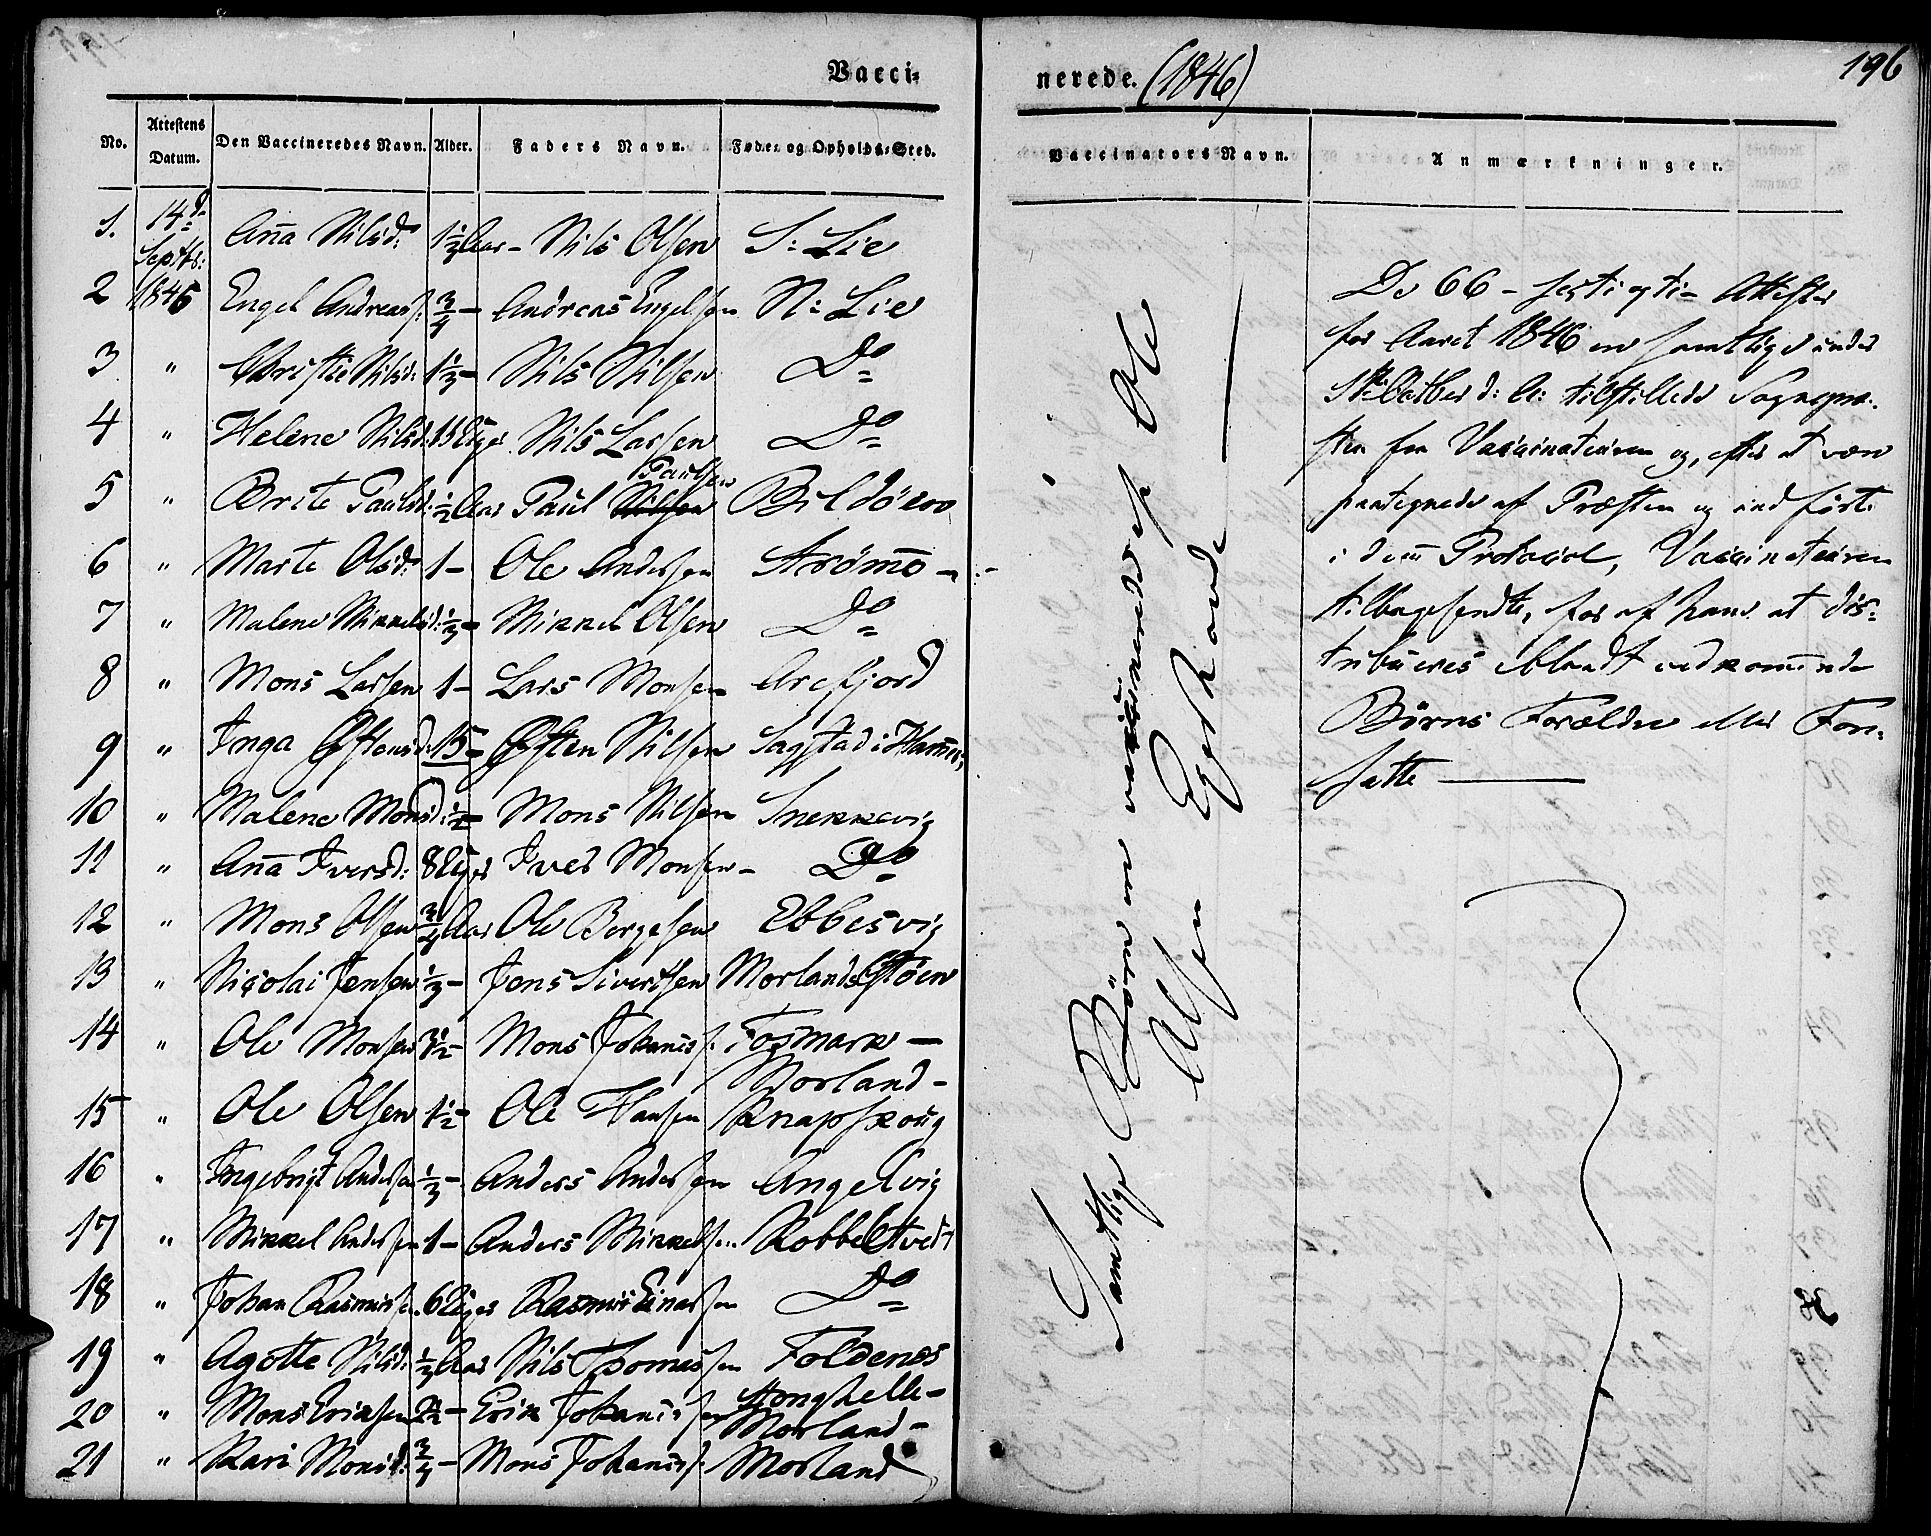 196
Vacci-
nerede. (1846)
No. Attestens Datum. Den Vaccineredes Navn. Alder. Faders Navn. Føde- og Opholds-Sted. Vaccinators Navn. Anmærkninger.
1. 14d Septb: Anna Nilsd: 1½ Aar - Nils Olsen S: Lie
2 1846 Engel Andreass: ¾ - Andreas Engelsen N: Lie
3 " Christie Nilsd: 1⅓ - Nils Nilsen Do
4 " Helene Nilsd: 11 Uger Nils Larsen Do
5 " Brite Paulsd: ½ Aar Paul Paulsen Bildøen
6 " Marte Olsd: 1 - Ole Andersen Strømme -
7 " Malene Mikkelsd: ⅓ - Mikkel Olsen Do
8 " Mons Larsen 1 - Lars Monsen Arefjord
9 " Inga Østensd: 15 - Østen Nilsen Sagstad i Hammer
10 " Malene Monsd: ½ - Mons Nilsen Snekkevig
11 " Anna Iversd: 8 Uger Iver Monsen - Do
12 " Mons Olsen ¾ Aar Ole Børgesen Ebbesvig
13 " Nicolai Jensen ⅓ - Jens Sivertsen Morlands Støen
14 " Ole Monsen ½ - Mons Johaness: Fosmark -
15 " Ole Olsen 1½ - Ole Hansen Morland - Knapskoug
16 " Ingebrigt Andersen ⅓ - Anders Andersen Angelvig
17 " Mikkel Andersen 1 - Anders Mikkelsen Kobbeltvedt
18 " Johan Rasmussen 6 Uger Rasmus Einarsen Do
19 " Agotte Nilsd: ½ Aar Nils Thomessen Foldenes
20 " Mons Eriksen 2½ - Erik Johannessen Stonghelle - Morland -
21 " Kari Monsd: ¾ - Mons Johaness: Morland
Samtlige Børn ere vaccinerede af Ole
Olsen Egekande
De 66 - sexti og ti - Attester
for Aaret 1846 ere samtlige under
1ste October d: A: tilstillede Sognepræ-
sten fra Vaccinateuren og, efter at være
paategnede af Præsten og indførte
i denne Protocol, Vaccinateuren
tilbagesendte, for af ham at dis-
tribueres iblandt vedkommende
Børns Forældre eller For-
satte